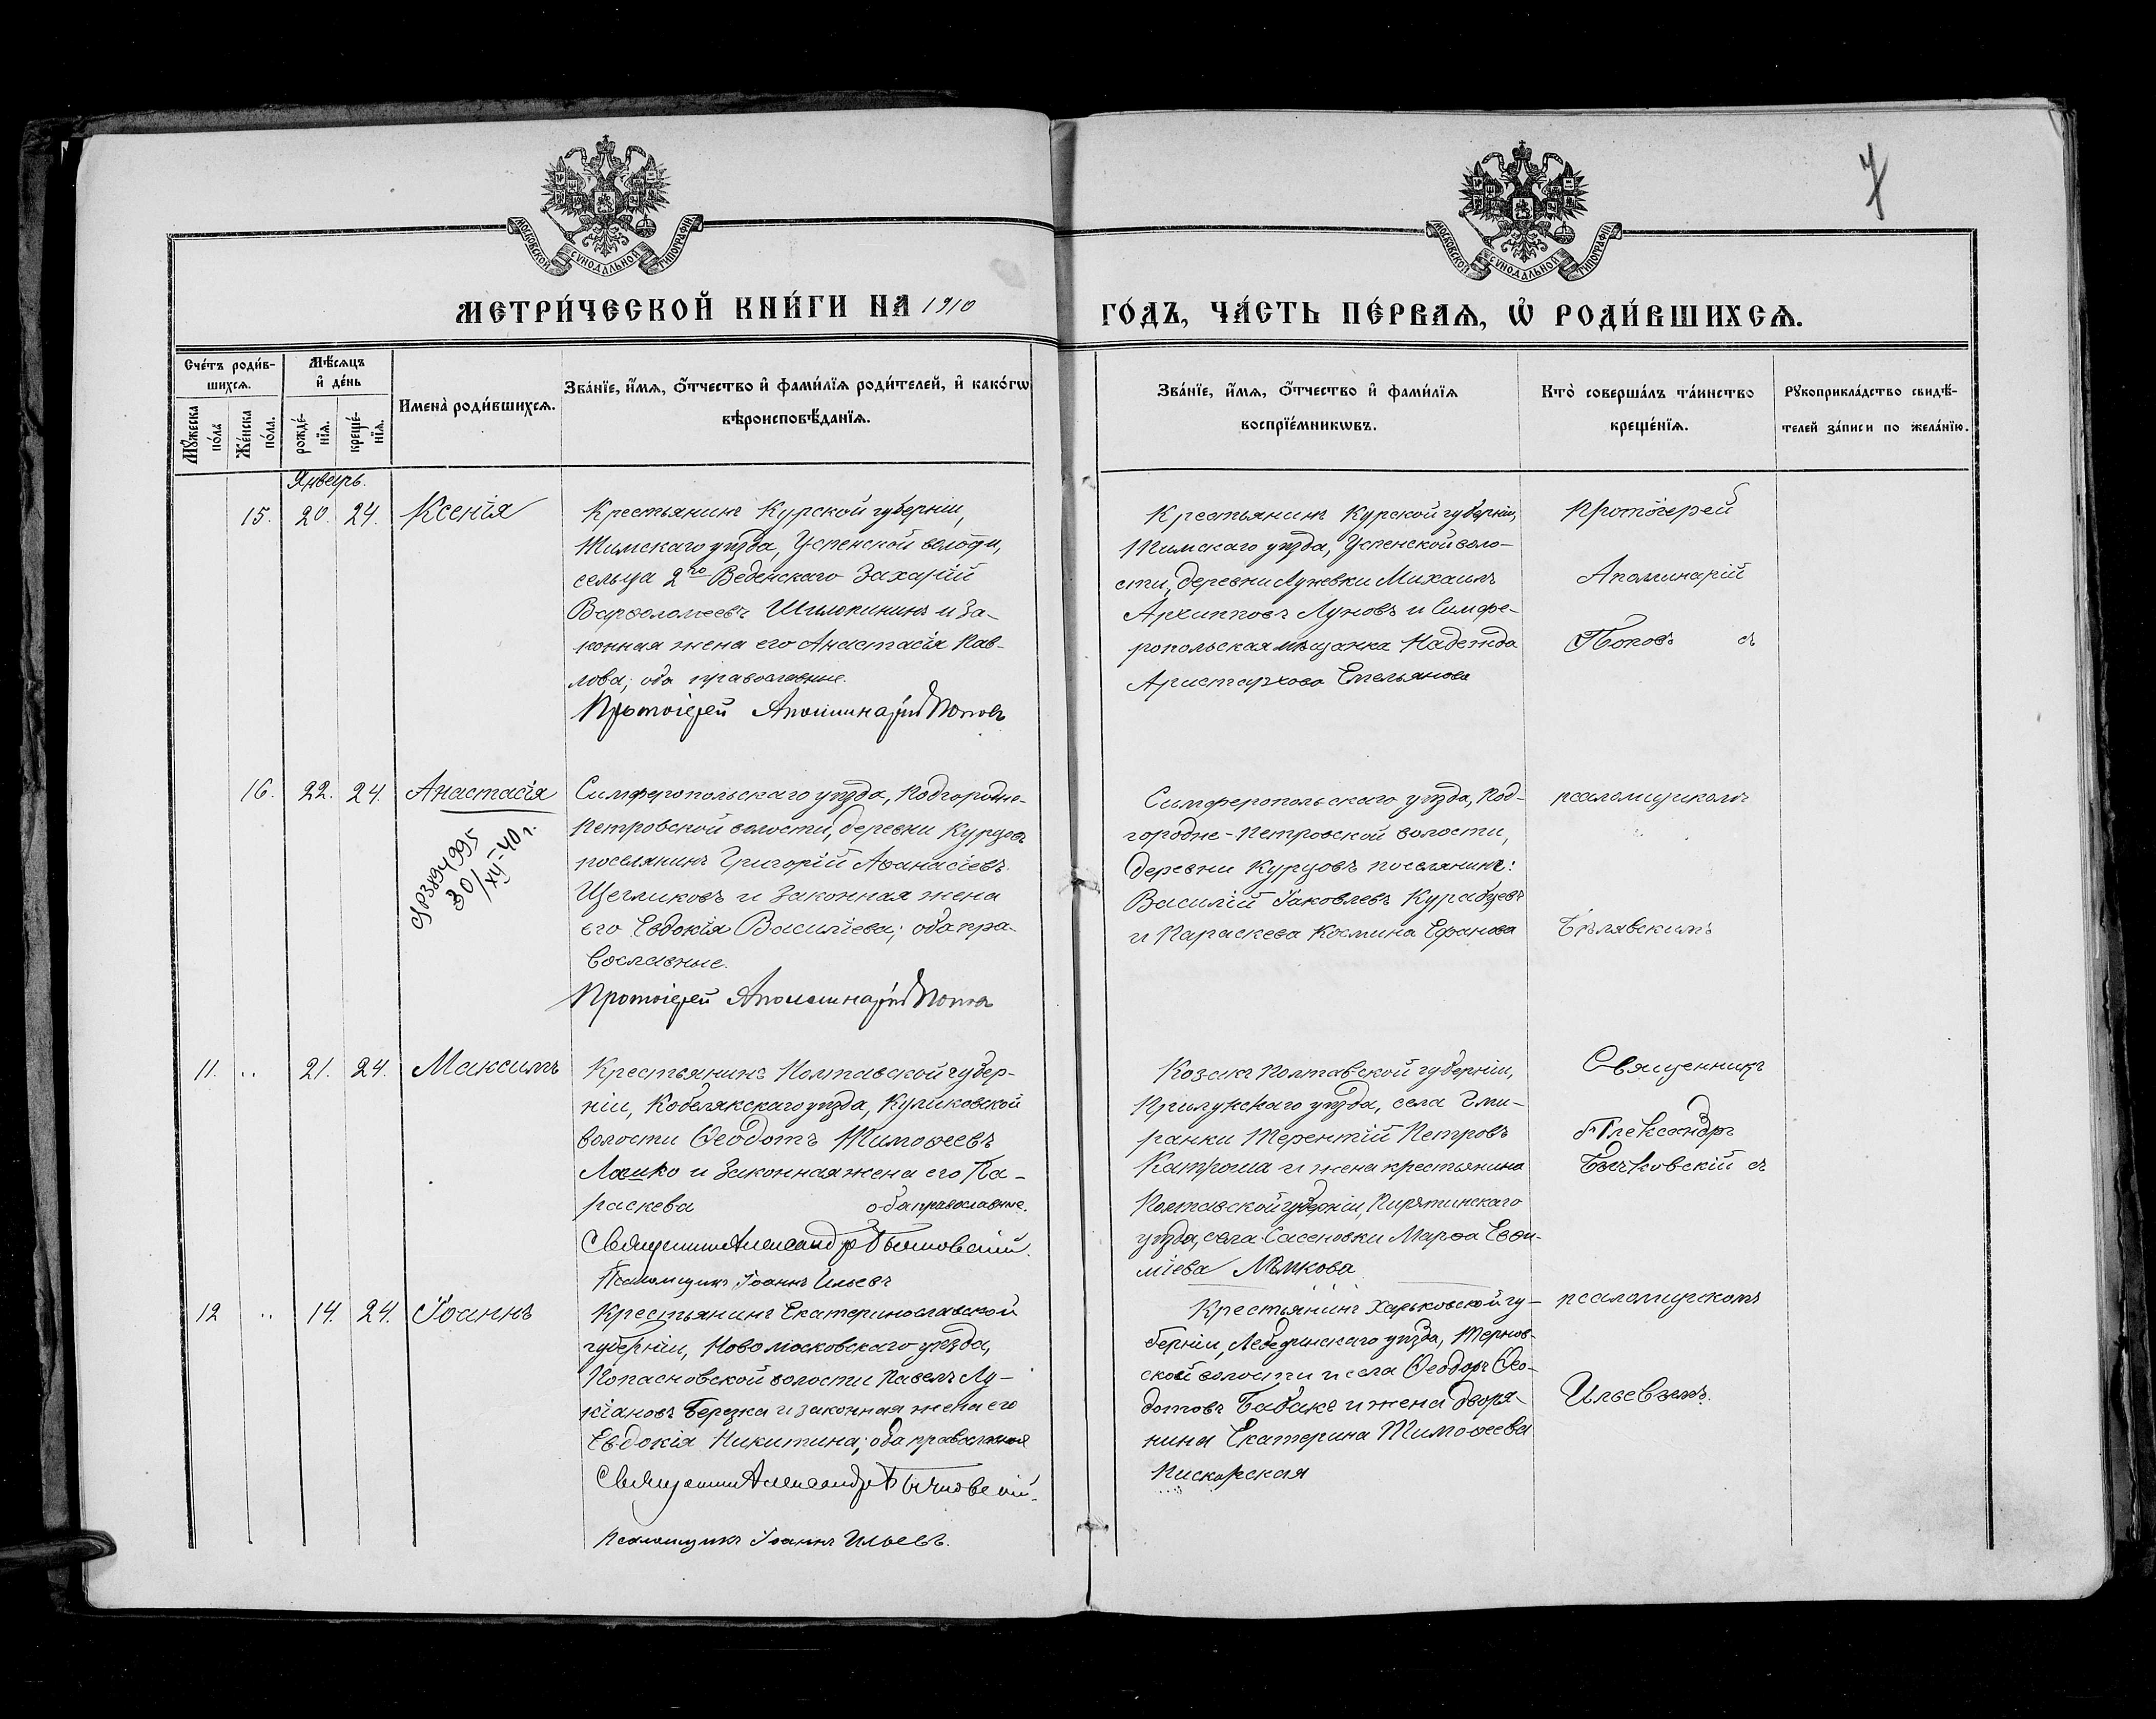 7
МОСКОВСКОЙ СΥНОДАЛЬНОЙ ТИПОГРАФІИ
МОСКОВСКОЙ СΥНОДАЛЬНОЙ ТИПОГРАФІИ
МЕТРИ́ЧЕСКОЙ КНИ́ГИ НА 1910
ГО́ДЪ, ЧА́СТЬ ПЕ́РВАѦ, Ѡ҆ РОДИ́ВШИХСѦ.
Сче́тъ роди́в-
шихсѧ.
Мѣ́сѧцъ
и҆ де́нь
Мꙋ́жеска
по́ла
Же́нска
по́ла.
рожде́-
нїѧ.
креще́-
нїѧ.
Имена̀ роди́вшихсѧ.
Зва́нїе, и҆́мѧ, ѻ҆́тчество и҆ фами́лїѧ роди́телей, и҆ како́гѡ
вѣроисповѣ́данїѧ.
Зва́нїе, и҆́мѧ, ѻ҆́тчество и҆ фами́лїѧ
воспрїе́мникѡвъ.
Кто̀ соверша́лъ та́инство
креще́нїѧ.
Рꙋкоприкла́дство свидѣ́-
телей за́писи по жела́нїю.
Январь.
15. 20. 24. Ксенія
Крестьянинъ Курской губерніи,
Тимскаго уѣзда, Успенской волости,
сельца 2го Веденскаго Захарій
Варѳоломеевъ Шилопининъ и за-
конная жена его Анастасія Пав-
лова; оба православные.
Протоіерей Аполлинарій Поповъ
Крестьянинъ Курской губерніи,
Тимскаго уѣзда, Успенской воло-
сти, деревни Луневки Михаилъ
Архипповъ Луновъ и Симфе-
ропольская мѣщанка Надежда
Аристархова Емельянова
Протоіерей
Аполинарій
Поповъ съ
16. 22. 24. Анастасія
30/XII-40 г.
Симферопольскаго уѣзда, Подгородне-
Петровской волости, деревни Курцовъ
поселянинъ Григорій Аѳанасіевъ
Щегликовъ и законная жена
его Евдокія Василіева; оба пра-
вославные.
Протоіерей Аполлинарій Поповъ
Симферопольскаго уѣзда, Под-
городне-Петровской волости,
деревни Курцовъ поселянинъ:
Василій Іаковлевъ Курабцевъ
и Параскева Космина Ефанова
псаломщикомъ
Бѣлявскимъ
11. .. 21. 24. Максимъ
Крестьянинъ Полтавской губер-
ніи, Кобелякскаго уѣзда, Куликовской
волости Ѳеодотъ Тимоѳеевъ
Лашко и законная жена его Па-
раскева оба православные.
Священникъ Александръ Бычковскій.
Псаломщикъ Іоаннъ Ильевъ
Козакъ Полтавской губерніи,
Прилукскаго уѣзда, села
Терентій Петровъ
Катроша и жена крестьянина
Полтавской губерніи, Пирятинскаго
уѣзда, села Сасеновки Марѳа Евѳи-
міева
Священникъ
Александръ
Бычковскій съ
12 .. 14. 24. Іоаннъ
Крестьянинъ Екатеринославской
губерніи, Новомосковскаго уѣзда,
Попасновской волости Павелъ Лу-
кіановъ Березка и законная жена его
Евдокія Никитина; оба православные
Священникъ Александръ Бычковскій.
Псаломщикъ Іоаннъ Ильевъ.
Крестьянинъ Харьковской гу-
берніи, Лебединскаго уѣзда, Тернов-
ской волости и села Ѳеодоръ Ѳео-
дотовъ Бабакъ и жена дворя-
нина Екатерина Тимоѳеева
Пискорская
псаломщикомъ
Ильевымъ.